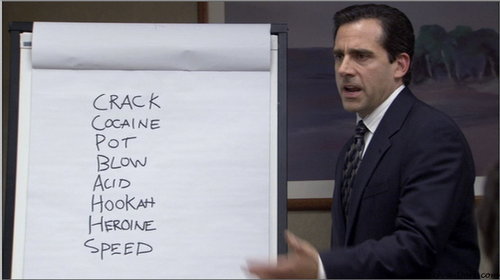 CRACK
COCAINE
POT
BLOW
ACID
HOOKAH
HEROINE
SPEED